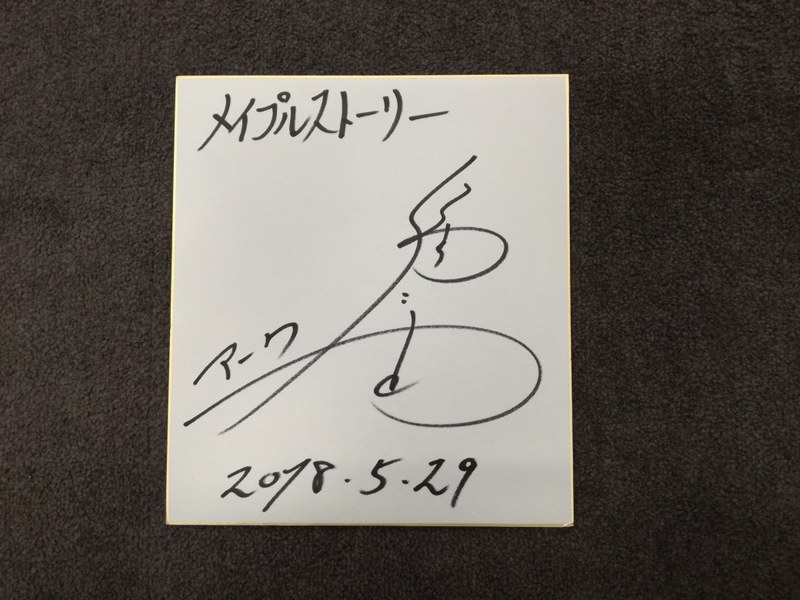 メイプルストーリー
アーク
2018.5.29